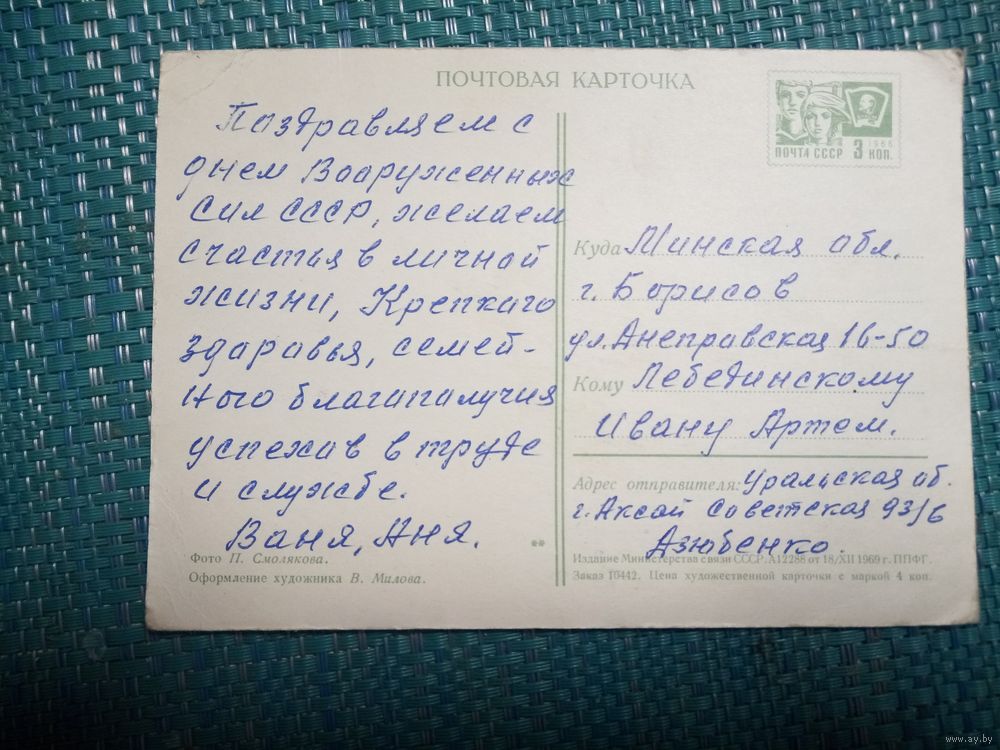 ПОЧТОВАЯ КАРТОЧКА
ПОЧТА СССР 3 КОП.
1966
Поздравляем с
днем Вооруженных
Сил СССР, желаем
счастья в личной
жизни, Крепкаго
здаравья, семей-
ного благапалучия
успехав в труде
и службе.
Ваня, Аня.
Фото П. Смолякова.
Оформление художника В. Милова.
**
Куда Минская обл.
г. Борисов
ул. Днеправская 16-50
Кому Лебединскому
Ивану Артем.
Адрес отправителя: Уральская об.
г. Аксай Советская 93/6
Дзюбенко.
Издание Министерства связи СССР. А12288 от 18/XII 1969 г. ППФГ.
Заказ 10442. Цена художественной карточки с маркой 4 коп.
www.ay.by